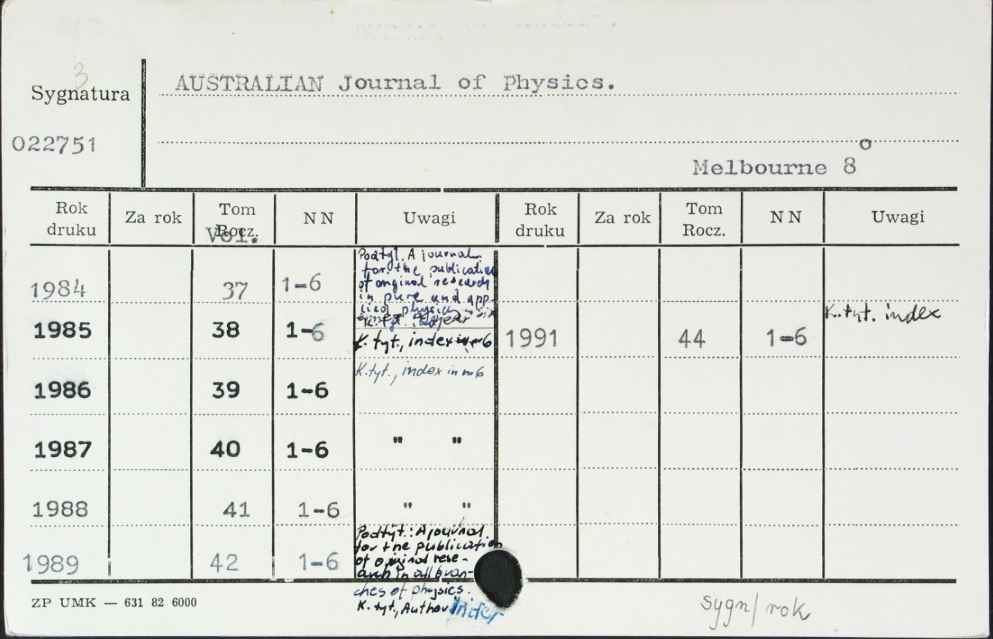 3
Sygnatura
AUSTRALIAN Journal of Physics.
022751
Melbourne 8°
Rok druku Za rok Tom Rocz. NN Uwagi Rok druku Za rok Tom Rocz. NN Uwagi
Vol.
1984 37 1-6
Podtyt. A journal
for the publication
of original research
in pure and app-
lied physics
1985 38 1-6 K. tyt., index in nr 6
1991 44 1-6 K. tyt. index
1986 39 1-6 K. tyt., index in nr 6
1987 40 1-6 " "
1988 41 1-6 " "
1989 42 1-6
Podtyt.: A journal
for the publication
of original rese-
arch in all bran-
ches of physics.
K. tyt., Author index
ZP UMK — 631 82 6000
sygn/rok